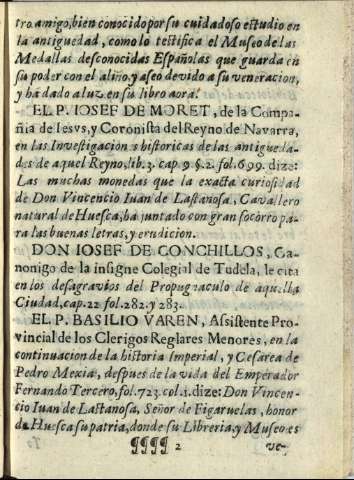 tro amigo, bien conocido por su cuidadoso estudio en
la antiguedad, como lo testifica el Museo de las
Medallas desconocidas Españolas que guarda en
su poder con el aliño, y aseo devido a su veneracion,
y ha dado a luz en su libro aora.
EL P. IOSEF DE MORET, de la Compa-
ñia de Iesvs, y Coronista del Reyno de Navarra,
en las Investigacion s historicas de las antigueda-
des de aquel Reyno, lib. 3. cap. 9. §. 2. fol. 699. dize:
Las muchas monedas que la exacta curiosidad
de Don Vincencio Iuan de Lastanosa, Cavallero
natural de Huesca, ha juntado con gran socorro pa-
ra las buenas letras, y erudicion.
DON IOSEF DE CONCHILLOS, Ca-
nonigo de la insigne Colegial de Tudela, le cita
en los desagravios del Propugnaculo de aquella
Ciudad, cap. 22. fol. 282. y 283.
EL P. BASILIO VAREN, Assistente Pro-
vincial de los Clerigos Reglares Menores, en la
continuacion de la historia Imperial, y Cesarea de
Pedro Mexia, despues de la vida del Emperador
Fernando Tercero, fol. 723. col. 1. dize: Don Vincen-
cio Iuan de Lastanosa, Señor de Figaruelas, honor
de Huesca su patria, donde su Libreria, y Museo es
¶¶¶¶ 2 ve-